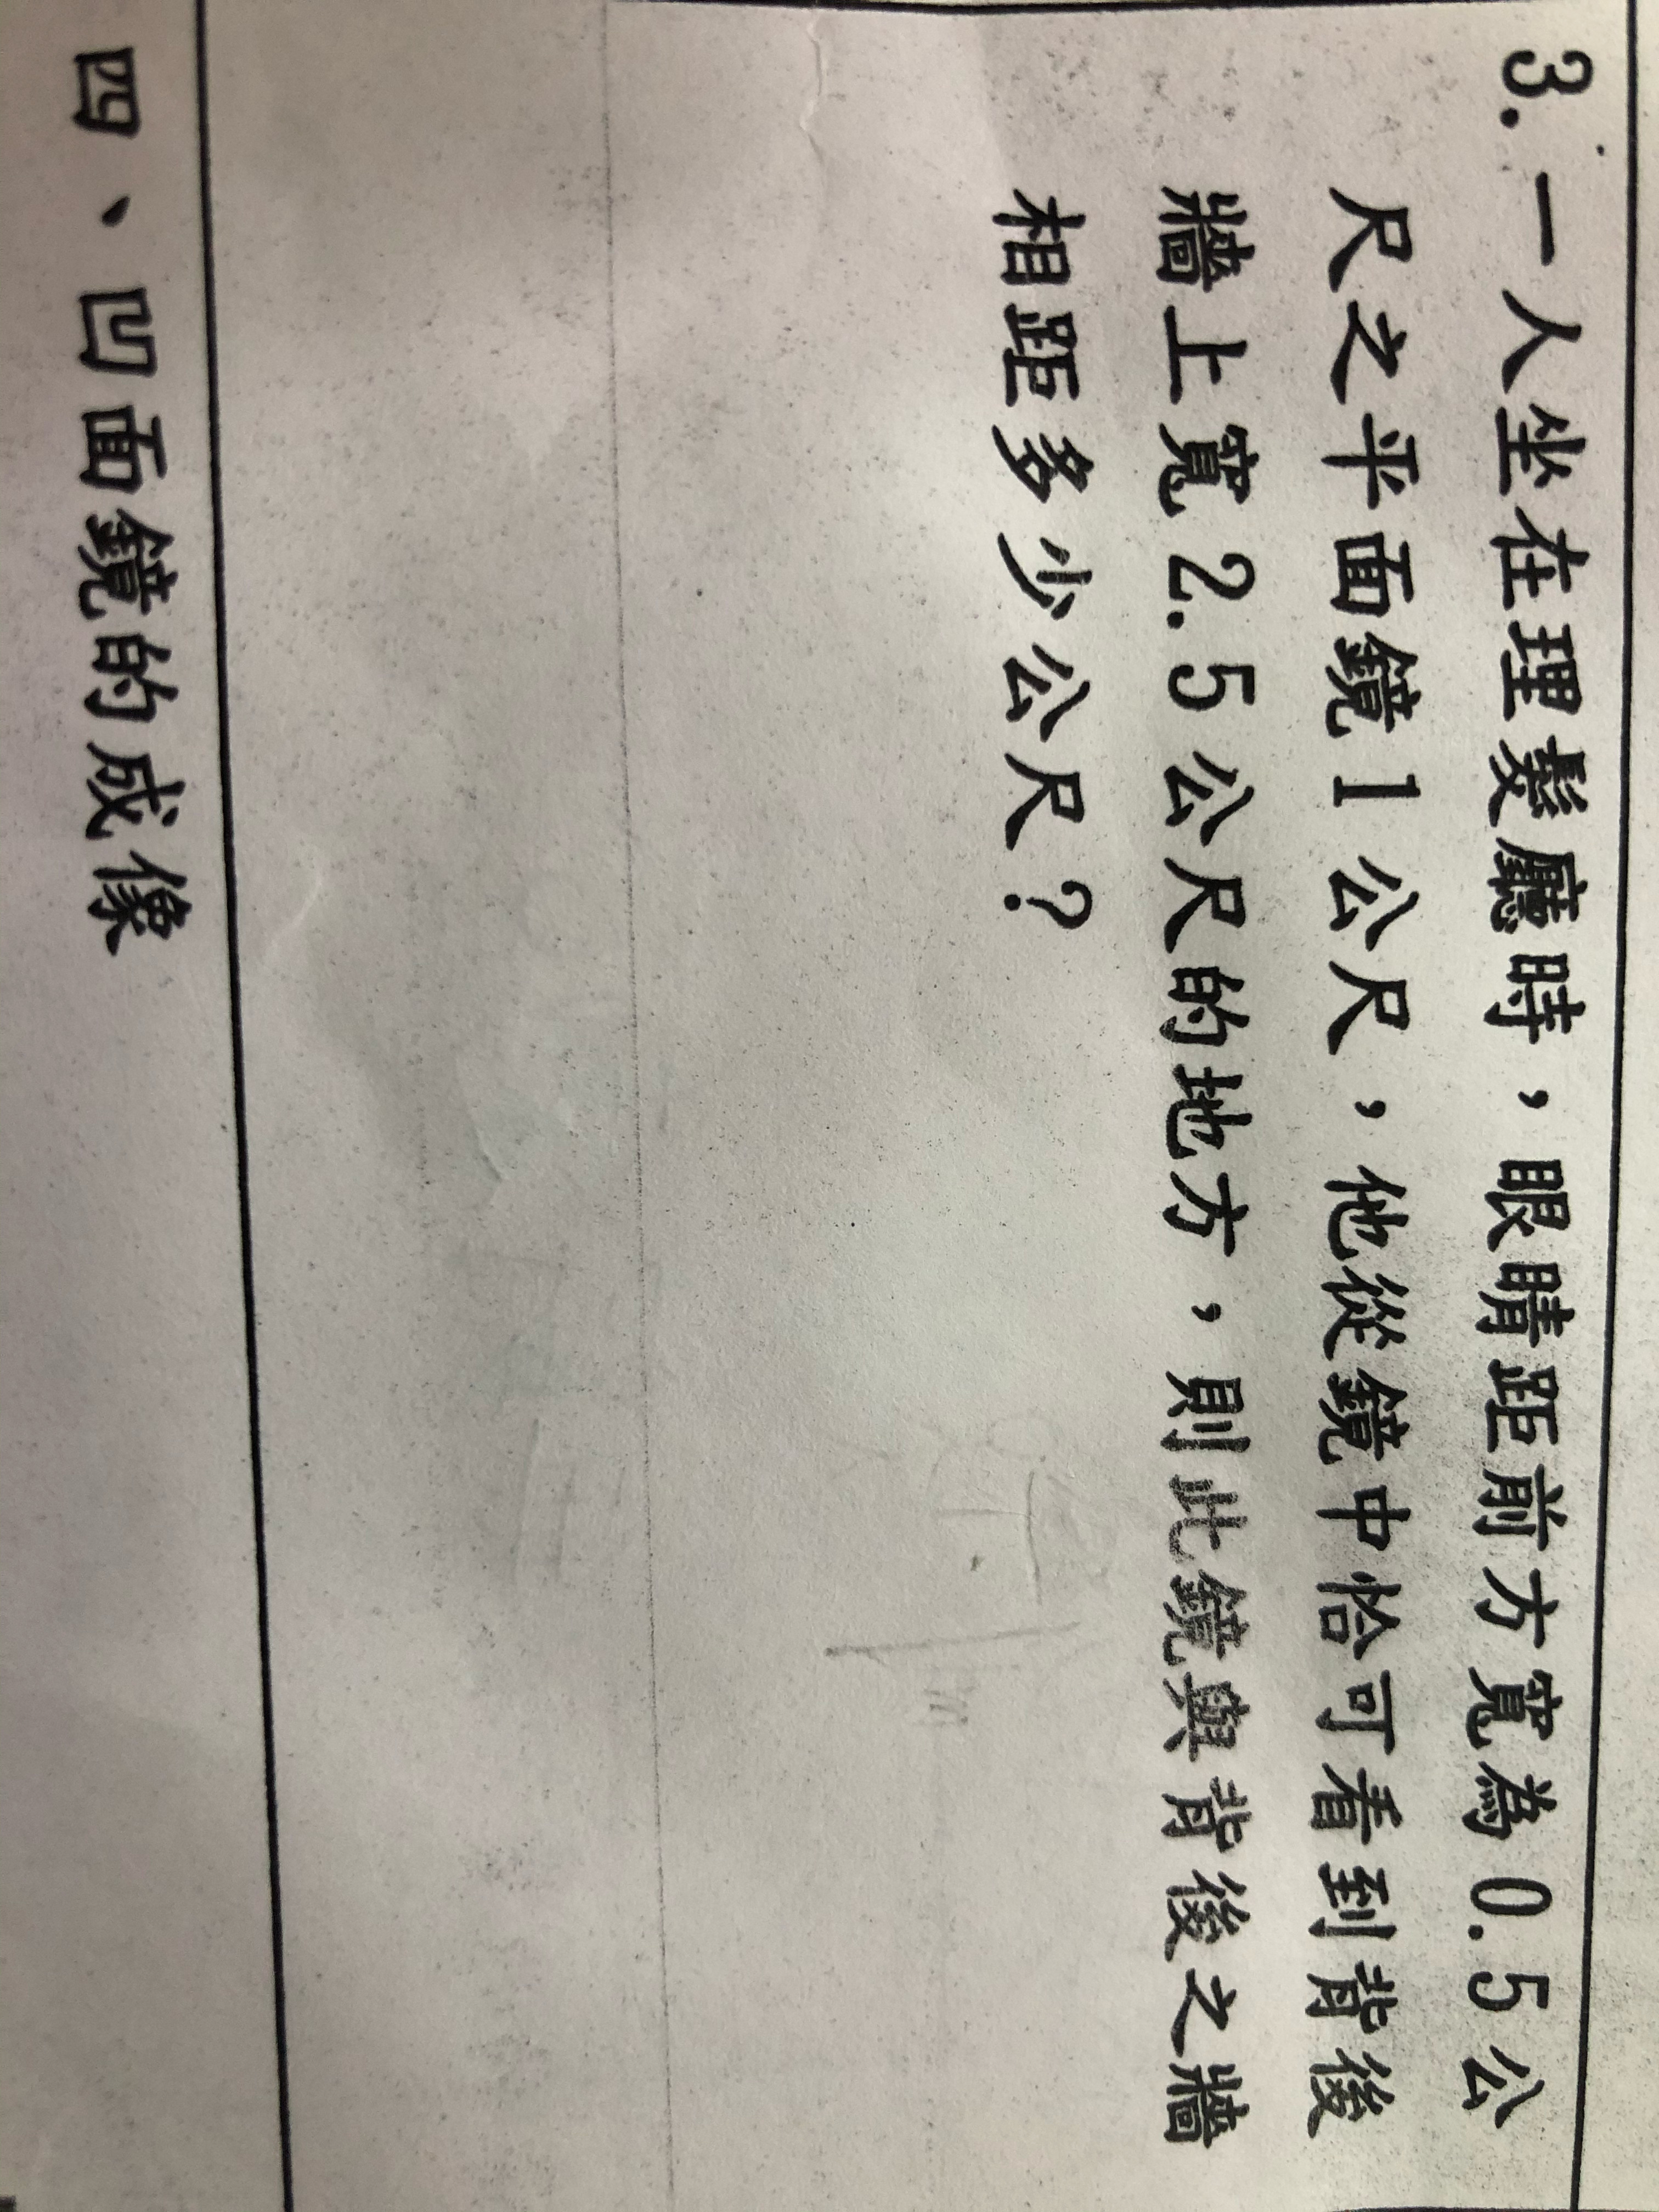 3. 一人坐在理髮廳時，眼睛距前方寬為0.5公
尺之平面鏡1公尺，他從鏡中恰可看到背後
牆上寬2.5公尺的地方，則此鏡與背後之牆
相距多少公尺？
四、凹面鏡的成像